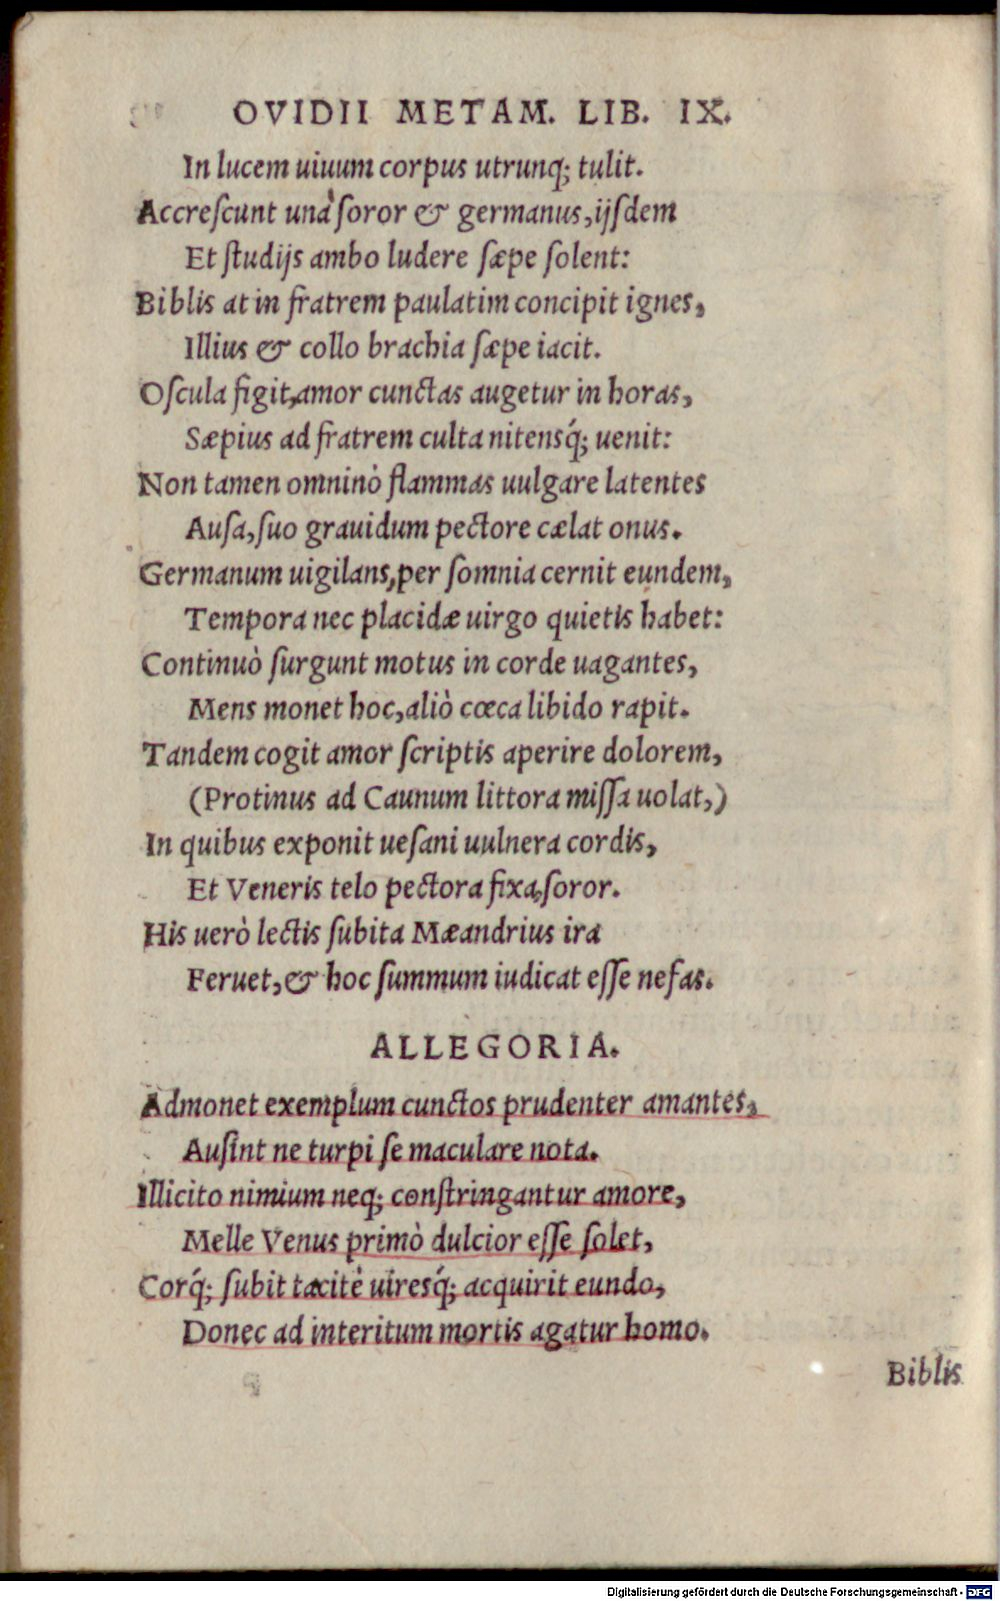 OVIDII METAM. LIB. IX.
In lucem uiuum corpus utrunq; tulit.
Accreſcunt unà ſoror & germanus, ijſdem
Et ſtudijs ambo ludere ſæpe ſolent:
Biblis at in fratrem paulatim concipit ignes,
Illius & collo brachia ſæpe iacit.
Oſcula figit, amor cunctas augetur in horas,
Sæpius ad fratrem culta nitensq́; uenit:
Non tamen omninò flammas uulgare latentes
Auſa, ſuo grauidum pectore cælat onus.
Germanum uigilans, per ſomnia cernit eundem,
Tempora nec placidæ uirgo quietis habet:
Continuò ſurgunt motus in corde uagantes,
Mens monet hoc, aliò cœca libido rapit.
Tandem cogit amor ſcriptis aperire dolorem,
(Protinus ad Caunum littora miſſa uolat,)
In quibus exponit ueſani uulnera cordis,
Et Veneris telo pectora fixa, ſoror.
His uerò lectis ſubita Mæandrius ira
Feruet, & hoc ſummum iudicat eſſe nefas.
ALLEGORIA.
Admonet exemplum cunctos prudenter amantes,
Auſint ne turpi ſe maculare nota.
Illicito nimium neq; conſtringantur amore,
Melle Venus primò dulcior eſſe ſolet,
Corq́; ſubit tacitè uiresq́; acquirit eundo,
Donec ad interitum mortis agatur homo.
Biblis
Digitalisierung gefördert durch die Deutsche Forschungsgemeinschaft - DFG